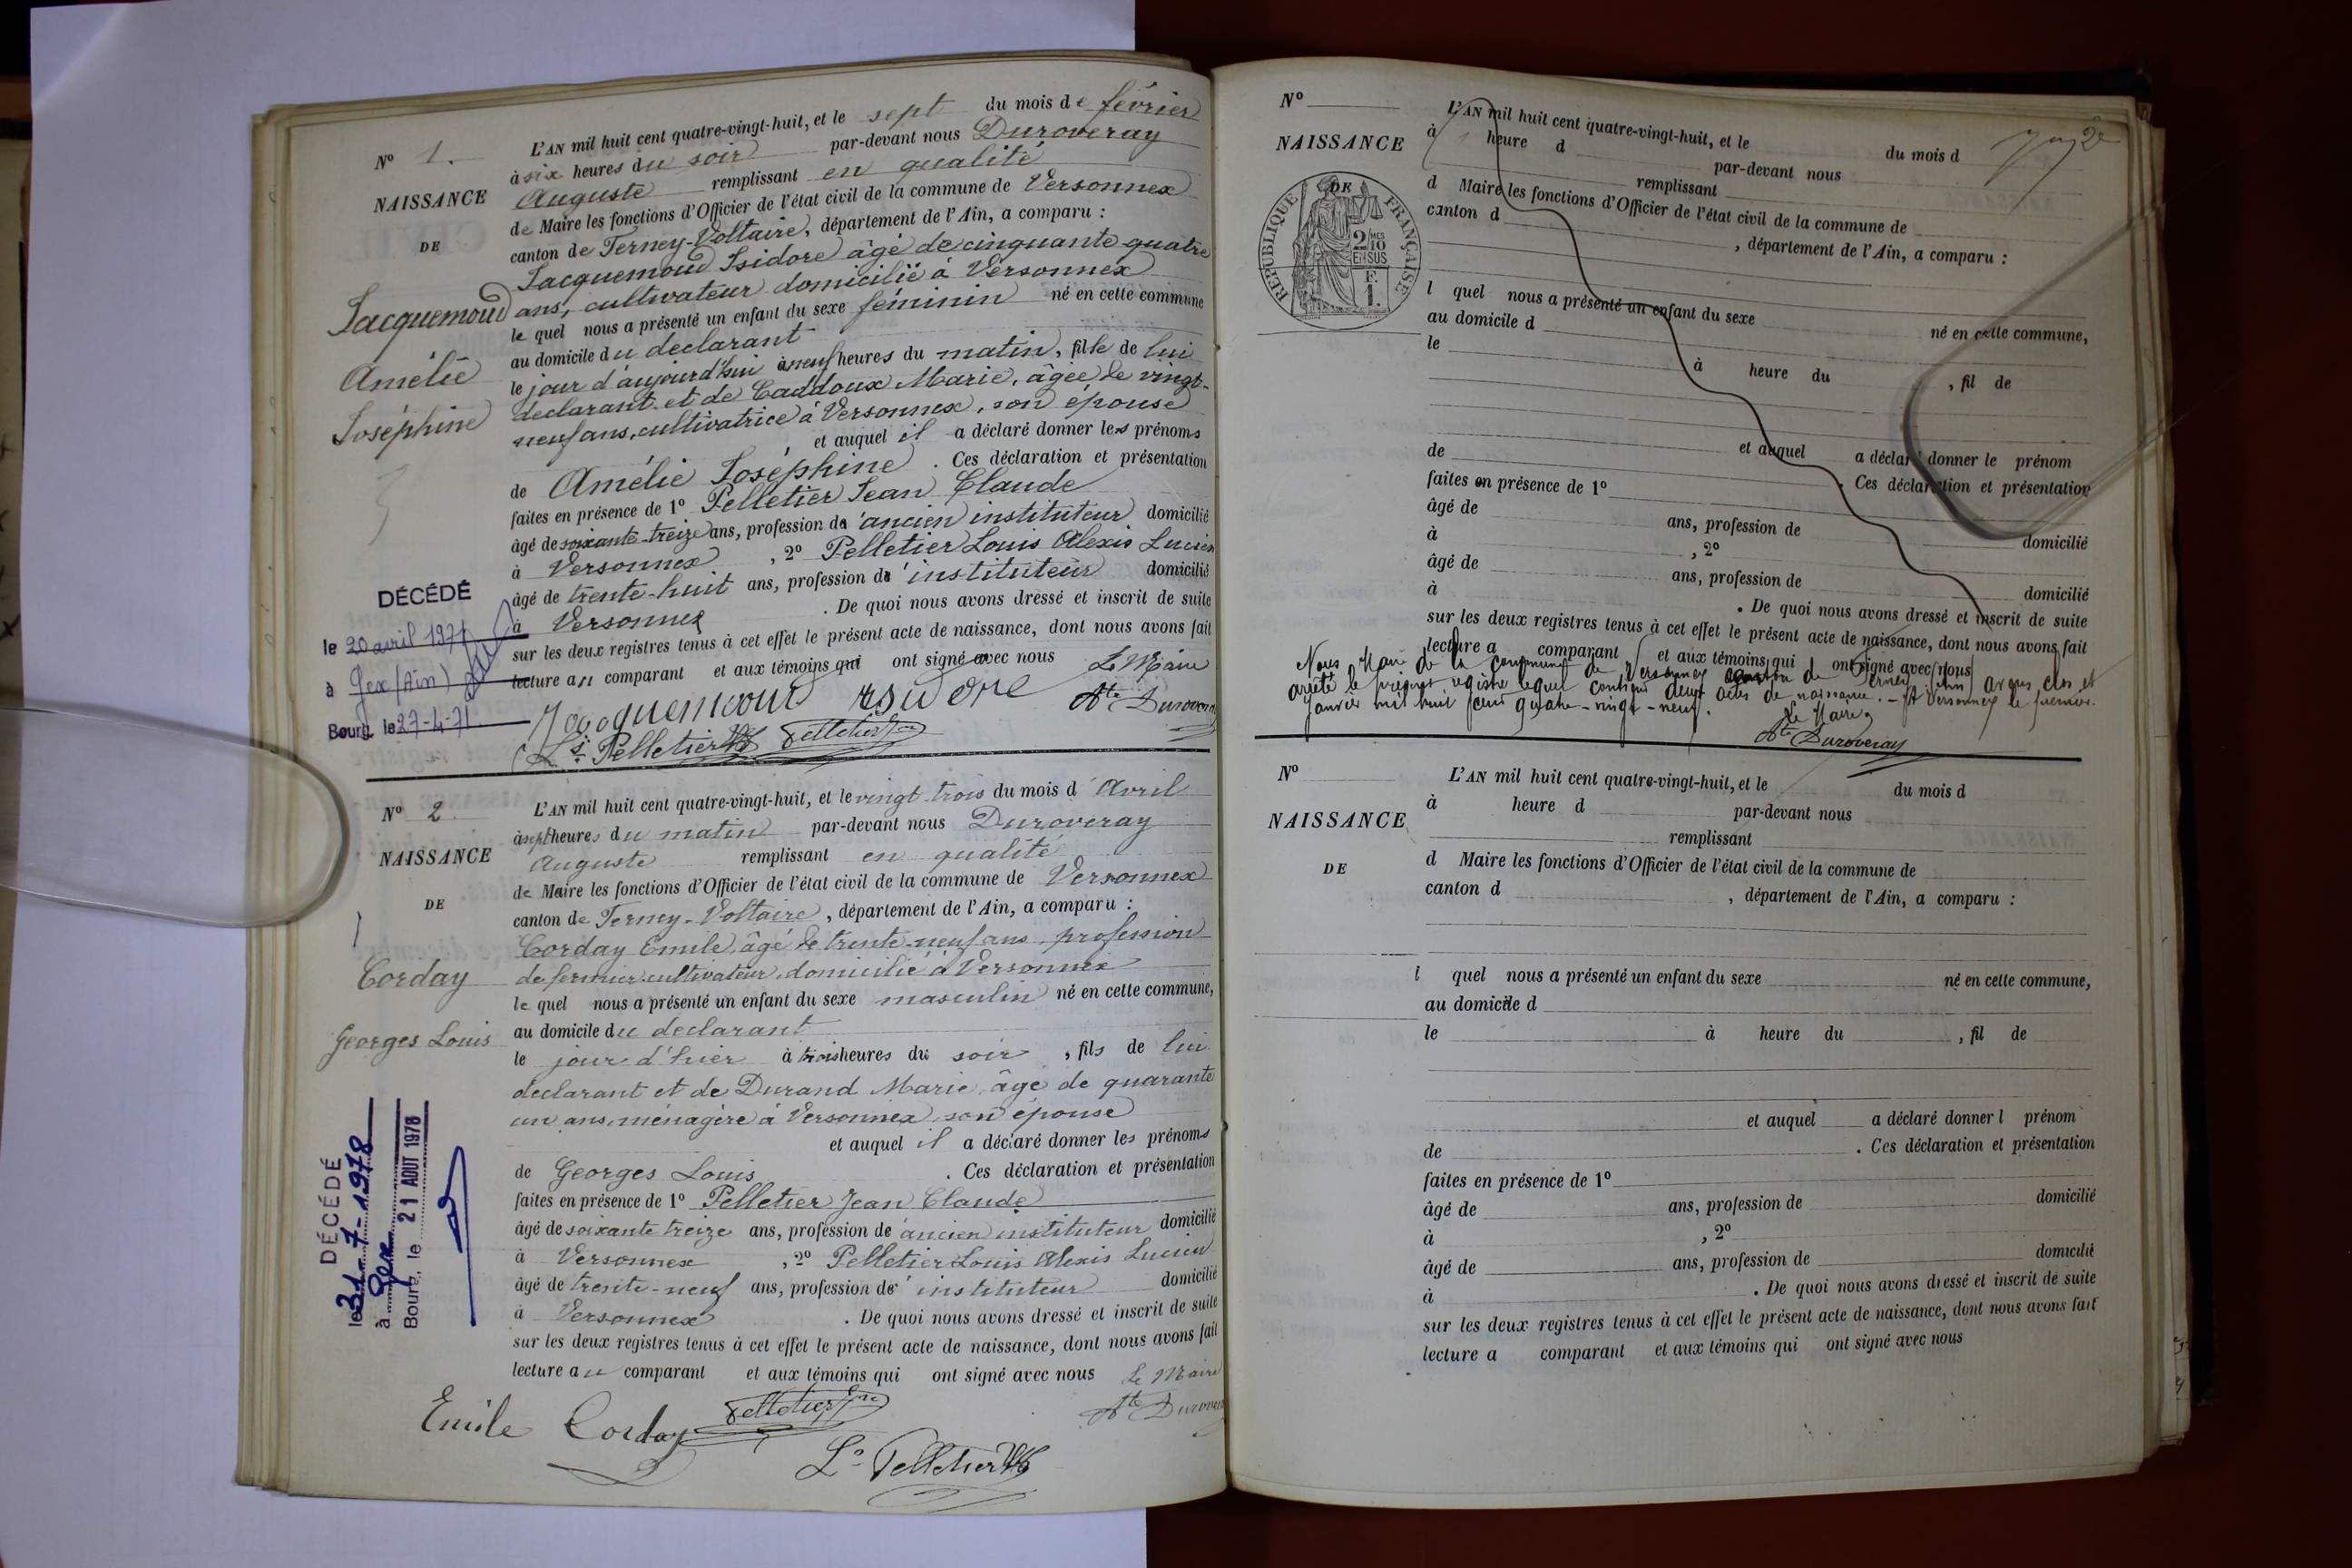 N° 1.
NAISSANCE
DE
Jacquemoud
Amélie
Joséphine
L'AN mil huit cent quatre-vingt-huit, et le sept du mois de février
à six heures du soir par-devant nous Duroveray
Auguste remplissant en qualité
de Maire les fonctions d'Officier de l'état civil de la commune de Versonnex
canton de Ferney-Voltaire, département de l'Ain, a comparu :
Jacquemoud Isidore âgé de cinquante-quatre
ans, cultivateur domicilié à Versonnex
le quel nous a présenté un enfant du sexe féminin né en cette commune
au domicile du déclarant
le jour d'aujourd'hui à neuf heures du matin, fille de lui
déclarant et de Caddoux Marie, âgée de vingt-
neuf ans, cultivatrice à Versonnex, son épouse
et auquel il a déclaré donner les prénoms
de Amélie Joséphine . Ces déclaration et présentation
faites en présence de 1° Pelletier Jean Claude
âgé de soixante-treize ans, profession d'ancien instituteur domicilié
à Versonnex , 2° Pelletier Louis Alexis Lucien
âgé de trente-huit ans, profession d'instituteur domicilié
à Versonnex . De quoi nous avons dressé et inscrit de suite
sur les deux registres tenus à cet effet le présent acte de naissance, dont nous avons fait
lecture au comparant et aux témoins qui ont signé avec nous Le Maire
Jacquemoud Isidore Ate Duroveray
Ls Pelletier fils Pelletier Jne
DÉCÉDÉ
le 20 avril 1971
à Gex (Ain)
Bourg, le 27-4-71
N° 2
NAISSANCE
DE
Corday
Georges Louis
L'AN mil huit cent quatre-vingt-huit, et le vingt-trois du mois d'Avril
à sept heures du matin par-devant nous Duroveray
Auguste remplissant en qualité
de Maire les fonctions d'Officier de l'état civil de la commune de Versonnex
canton de Ferney-Voltaire, département de l'Ain, a comparu :
Corday Emile, âgé de trente-neuf ans, profession
de fermier-cultivateur, domicilié à Versonnex
le quel nous a présenté un enfant du sexe masculin né en cette commune,
au domicile du déclarant
le jour d'hier à trois heures du soir , fils de lui
déclarant et de Durand Marie âgé de quarante
un ans, ménagère à Versonnex son épouse
et auquel il a déclaré donner les prénoms
de Georges Louis . Ces déclaration et présentation
faites en présence de 1° Pelletier Jean Claude
âgé de soixante treize ans, profession d'ancien instituteur domicilié
à Versonnex , 2° Pelletier Louis Alexis Lucien
âgé de trente-neuf ans, profession d'instituteur domicilié
à Versonnex . De quoi nous avons dressé et inscrit de suite
sur les deux registres tenus à cet effet le présent acte de naissance, dont nous avons fait
lecture au comparant et aux témoins qui ont signé avec nous Le Maire
Emile Corday Pelletier Jne Ate Duroveray
Ls Pelletier fils
DÉCÉDÉ
le 31-7-1978
à Gex
Bourg, le 21 AOUT 1978
N°
NAISSANCE
DE
RÉPUBLIQUE FRANÇAISE
2/10 MES
EN SUS
F.
1.
L'AN mil huit cent quatre-vingt-huit, et le du mois d
à heure d par-devant nous
remplissant
d Maire les fonctions d'Officier de l'état civil de la commune de
canton d , département de l'Ain, a comparu :
l quel nous a présenté un enfant du sexe né en cette commune,
au domicile d
le à heure du , fil de
et auquel a déclaré donner le prénom
de . Ces déclaration et présentation
faites en présence de 1°
âgé de ans, profession de domicilié
à , 2°
âgé de ans, profession de domicilié
à . De quoi nous avons dressé et inscrit de suite
sur les deux registres tenus à cet effet le présent acte de naissance, dont nous avons fait
lecture a comparant et aux témoins qui ont signé avec nous
Nous Maire de la commune de Versonnex canton de Ferney (Ain) avons clos et
arrêté le présent registre lequel contient deux actes de naissance. - A Versonnex le premier
janvier mil huit cent quatre-vingt-neuf.
Le Maire,
Ate Duroveray
N°
NAISSANCE
DE
L'AN mil huit cent quatre-vingt-huit, et le du mois d
à heure d par-devant nous
remplissant
d Maire les fonctions d'Officier de l'état civil de la commune de
canton d , département de l'Ain, a comparu :
l quel nous a présenté un enfant du sexe né en cette commune,
au domicile d
le à heure du , fil de
et auquel a déclaré donner l prénom
de . Ces déclaration et présentation
faites en présence de 1°
âgé de ans, profession de domicilié
à , 2°
âgé de ans, profession de domicilié
à . De quoi nous avons dressé et inscrit de suite
sur les deux registres tenus à cet effet le présent acte de naissance, dont nous avons fait
lecture a comparant et aux témoins qui ont signé avec nous